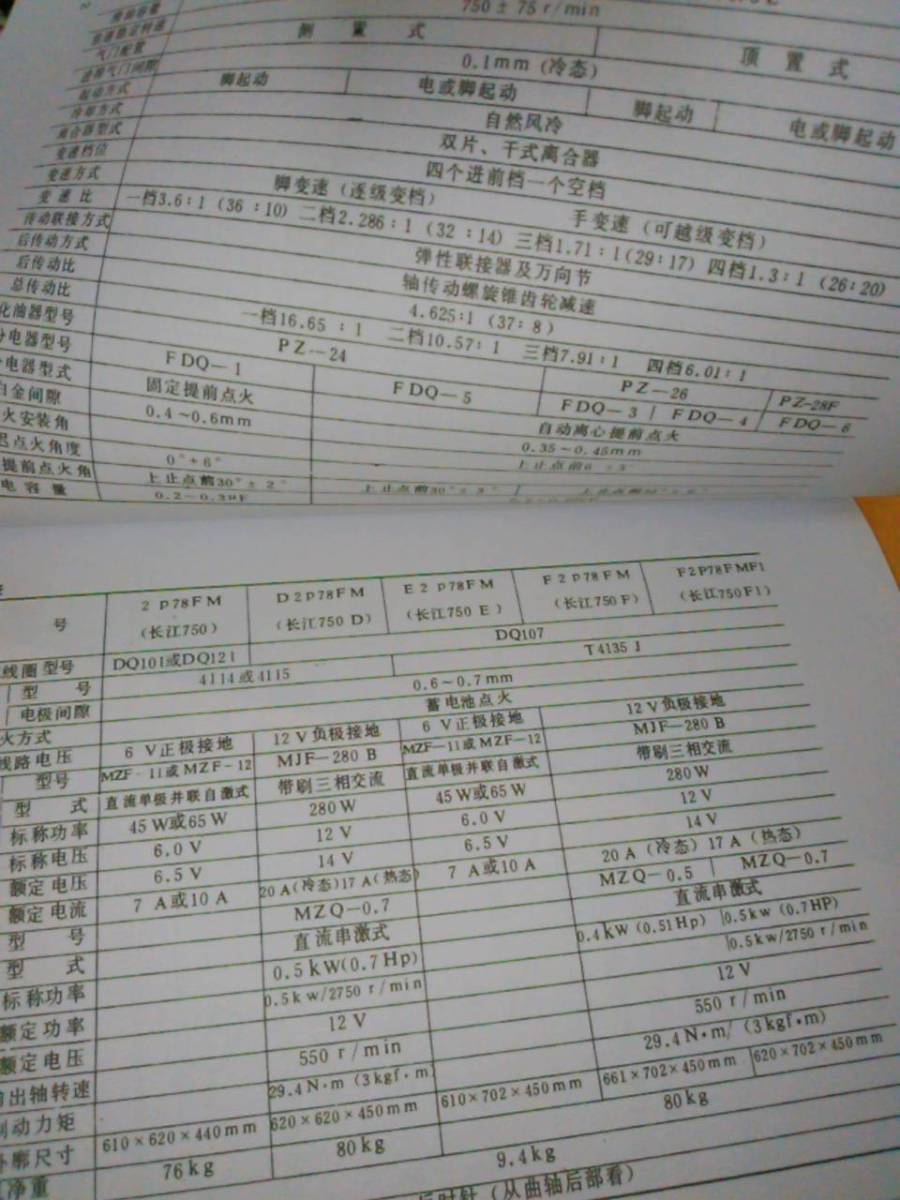 750 ± 75 r/min
侧 置 式 顶 置 式
气门配置
进排气门间隙 0.1mm (冷态)
起动方式 脚起动 电或脚起动 脚起动 电或脚起动
冷却方式 自然风冷
离合器型式 双片、干式离合器
变速档位 四个进前档一个空档
变速方式 脚变速 (连级变档) 手变速 (可越级变档)
变 速 比 一档3.6:1 (36:10) 二档2.286:1 (32:14) 三档1.71:1(29:17) 四档1.3:1 (26:20)
传动联接方式 弹性联接器及万向节
后传动方式 轴传动螺旋锥齿轮减速
后传动比 4.625:1 (37:8)
总传动比 一档16.65 :1 二档10.57:1 三档7.91:1 四档6.01:1
化油器型号 PZ—24 PZ—26 PZ-28F
分电器型号 FDQ—1 FDQ—5 FDQ—3 FDQ—4 FDQ—6
电器型式 固定提前点火 自动离心提前点火
白金间隙 0.4~0.6mm 0.35~0.45mm
火安装角
迟点火角度 0°+6°
提前点火角 上止点前30°± 2° 上止点前30°± 3°
电 容 量 0.2—0.3μF
号 2 P78FM (长江750) D2P78FM (长江750 D) E2 P78FM (长江750 E) F2P78FM (长江750 F) F2P78FMF1 (长江750F1)
线圈型号 DQ101或DQ121 DQ107
型 号 4114或4115 T4135 J
电极间隙 0.6~0.7mm
火方式 蓄电池点火
线路电压 6 V正极接地 12V负极接地 6 V正极接地 12V负极接地
型号 MZF-11或MZF-12 MJF—280 B MZF—11或MZF—12 MJF—280 B
型 式 直流单极并联自激式 带刷三相交流 直流单极并联自激式 带刷三相交流
标称功率 45W或65W 280W 45W或65W 280W
标称电压 6.0V 12V 6.0V 12V
额定电压 6.5V 14V 6.5V 14V
额定电流 7 A或10 A 20A(冷态)17A(热态) 7 A或10 A 20A (冷态) 17A (热态)
型 号 MZQ—0.7 MZQ—0.5 MZQ—0.7
型 式 直流串激式 直流串激式
标称功率 0.5kW(0.7Hp) 0.4kW (0.51Hp) 0.5kw (0.7HP)
额定功率 0.5kw/2750 r/min 0.5kw/2750 r/min
额定电压 12V 12V
出轴转速 550 r/min 550 r/min
制动力矩 29.4N·m (3kgf·m) 29.4N·m/ (3kgf·m)
外廓尺寸 610×620×440mm 620×620×450mm 610×702×450mm 661×702×450mm 620×702×450mm
净重 76kg 80kg 80kg
9.4kg
时针 (从曲轴后部看)